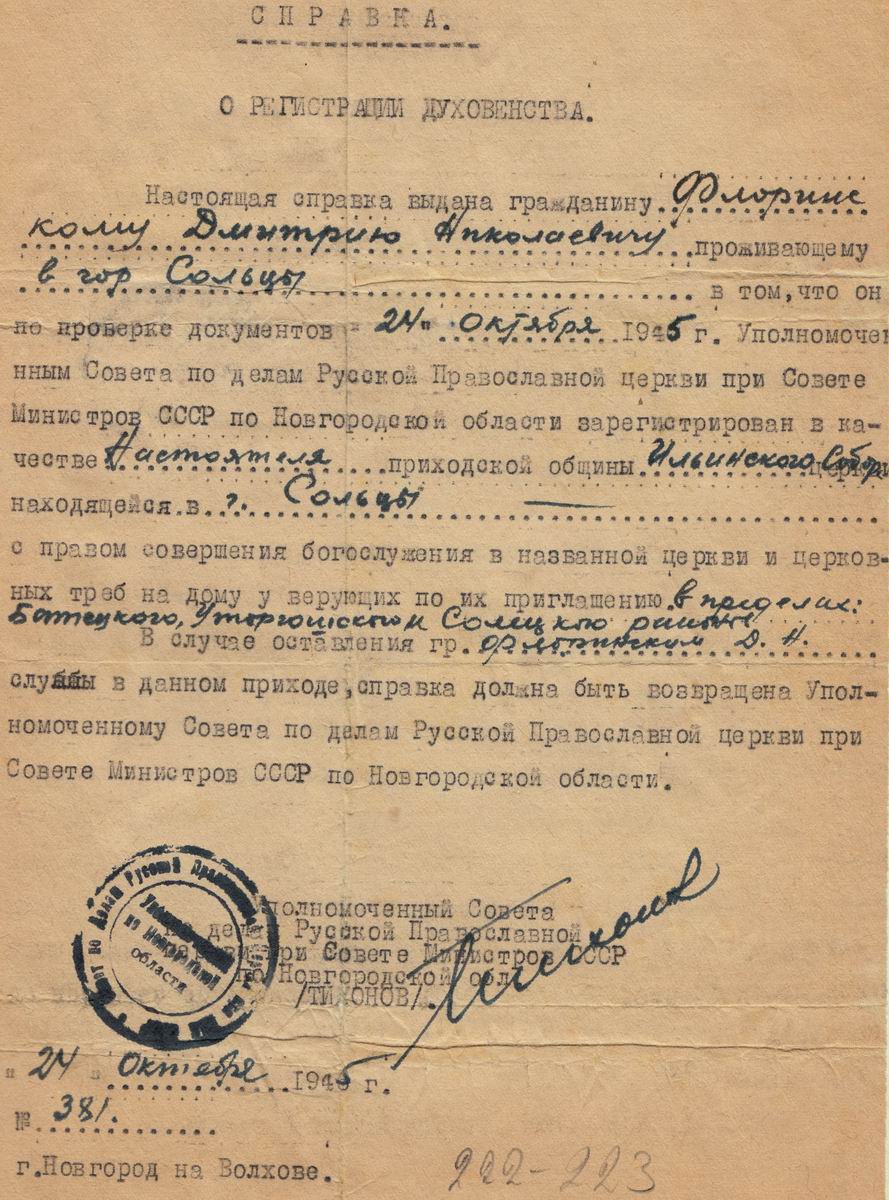 СПРАВКА.
О РЕГИСТРАЦИИ ДУХОВЕНСТВА.
Настоящая справка выдана гражданину Флоринс
кому Дмитрию Николаевичу проживающему
в гор Сольцы в том, что он
по проверке документов "24" октября 1945 г. Уполномочен
нным Совета по делам Русской Православной церкви при Совете
Министров СССР по Новгородской области зарегистрирован в ка-
честве Настоятеля приходской общины Ильинского Собор церкви
находящейся в г. Сольцы —
с правом совершения богослужения в названной церкви и церков-
ных треб на дому у верующих по их приглашению. в пределах:
Батецкого, Уторгошского и Солецкого районов
В случае оставления гр. Флоринским Д. Н.
службы в данном приходе, справка должна быть возвращена Упол-
номоченному Совета по делам Русской Православной церкви при
Совете Министров СССР по Новгородской области.
Уполномоченный Совета
делам Русской Православной
церкви при Совете Министров СССР
по Новгородской обл
/ТИХОНОВ/.
по Делам Русской
Уполномоченный
по Новгородской
области
"24" Октября 1945 г.
№ 381.
г.Новгород на Волхове.
222-223